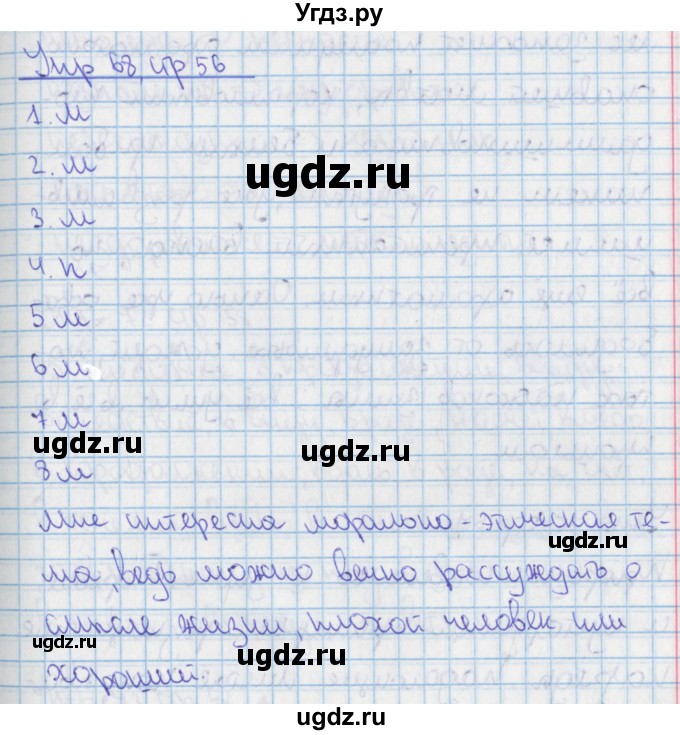 Угдз.ру
Упр 68, стр 56
1. М
2. М
ugdz.ru
3. М
4. П
5 М
6 М
7 М
ugdz.ru
ugdz.ru
8 М
Мне интересна морально-этическая те-
ugdz.ru
ма, ведь можно вечно рассуждать о
смысле жизни, плохой человек или
ugdz.ru
ugdz.ru
хороший.
ugdz.ru